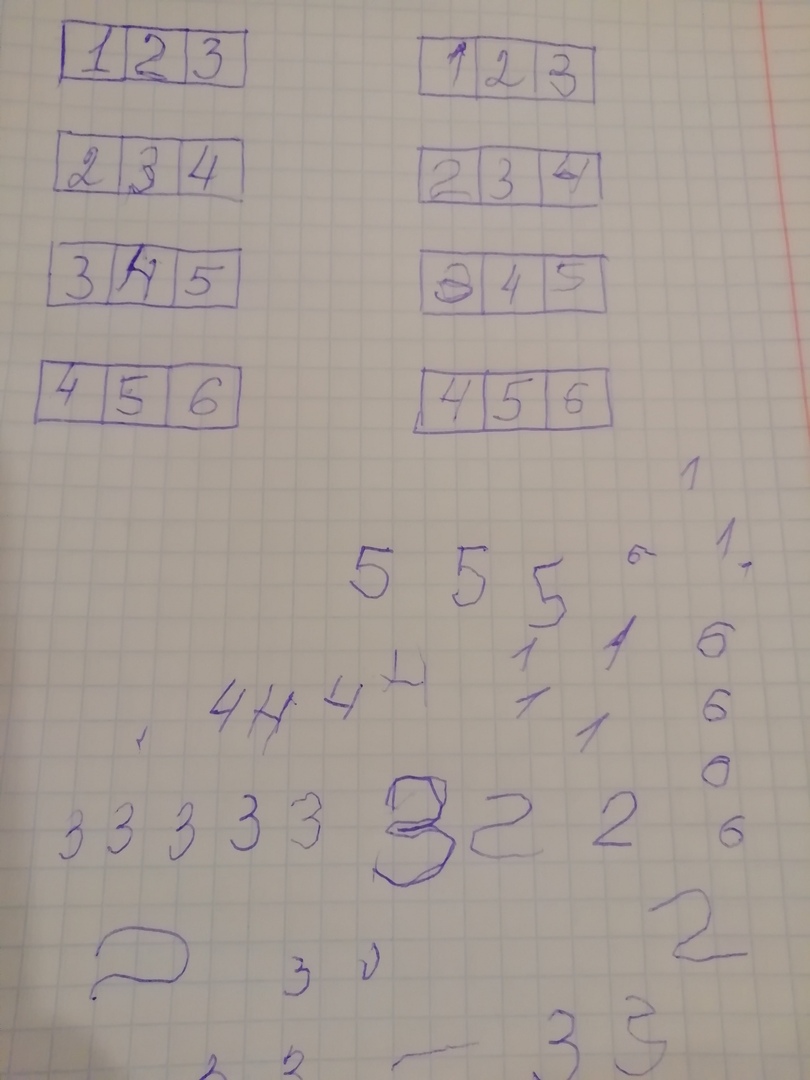 1 2 3 1 2 3
2 3 4 2 3 4
3 4 5 3 4 5
4 5 6 4 5 6
1
5 5 5 6 1
1 1 6
4 4 4 4 1 6
1
6
3 3 3 3 3 3 2 2 6
2 3 2
3 3